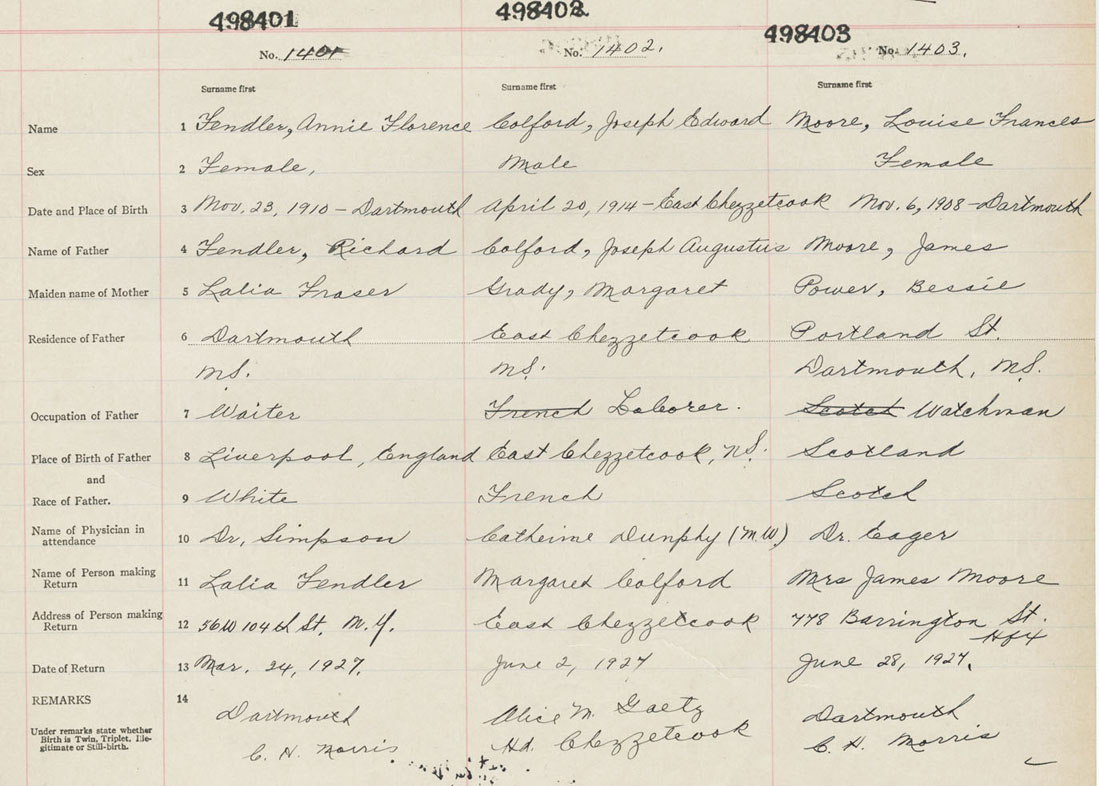 498401 498402 498403
No. 1401 No. 1402. No. 1403.
Surname first Surname first Surname first
Name 1 Fendler, Annie Florence Colford, Joseph Edward Moore, Louise Frances
Sex 2 Female, Male Female
Date and Place of Birth 3 Nov. 23, 1910 - Dartmouth April 20, 1914 - East Chezzetcook Nov. 6, 1908 - Dartmouth
Name of Father 4 Fendler, Richard Colford, Joseph Augustus Moore, James
Maiden name of Mother 5 Lalia Fraser Grady, Margaret Power, Bessie
Residence of Father 6 Dartmouth East Chezzetcook Portland St.
N.S. N.S. Dartmouth, N.S.
Occupation of Father 7 Waiter French Laborer. Scotch Watchman
Place of Birth of Father 8 Liverpool, England East Chezzetcook, N.S. Scotland
and
Race of Father. 9 White French Scotch
Name of Physician in
attendance 10 Dr, Simpson Catherine Dunphy (M.W.) Dr. Eager
Name of Person making
Return 11 Lalia Fendler Margaret Colford Mrs James Moore
Address of Person making
Return 12 56 W 104th St. N.Y. East Chezzetcook 778 Barrington St.
Hfx
Date of Return 13 Mar. 24, 1927. June 2, 1927 June 28, 1927.
REMARKS 14
Dartmouth Alice M. Gaetz Dartmouth
Under remarks state whether
Birth is Twin, Triplet, Ille-
gitimate or Still-birth.
C. H. Morris Hd. Chezzetcook C. H. Morris